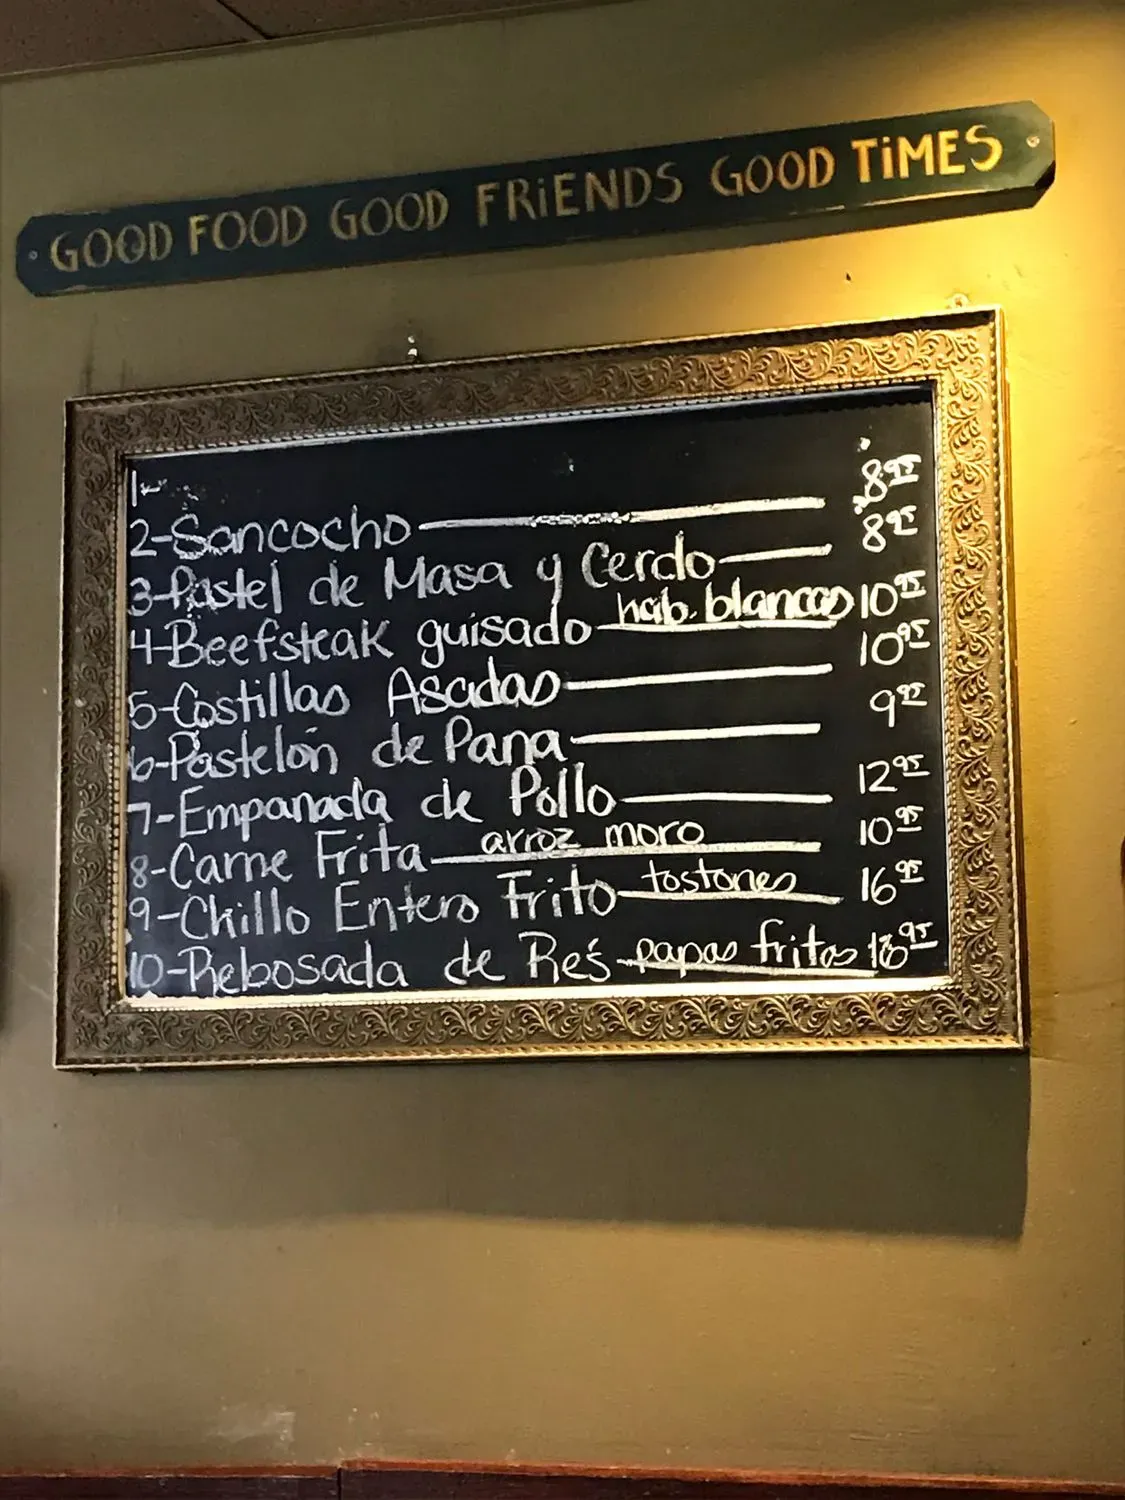 GOOD FOOD GOOD FRiENDS GOOD TiMES
1-
2-Sancocho 8 95
3-Pastel de Masa y Cerdo 8 95
4-Beefsteak guisado hab. blancas 10 95
5-Costillas Asadas 10 95
6-Pastelón de Pana 9 95
7-Empanada de Pollo 12 95
8-Carne Frita arroz moro 10 95
9-Chillo Entero Frito tostones 16 95
10-Rebosada de Res papas fritas